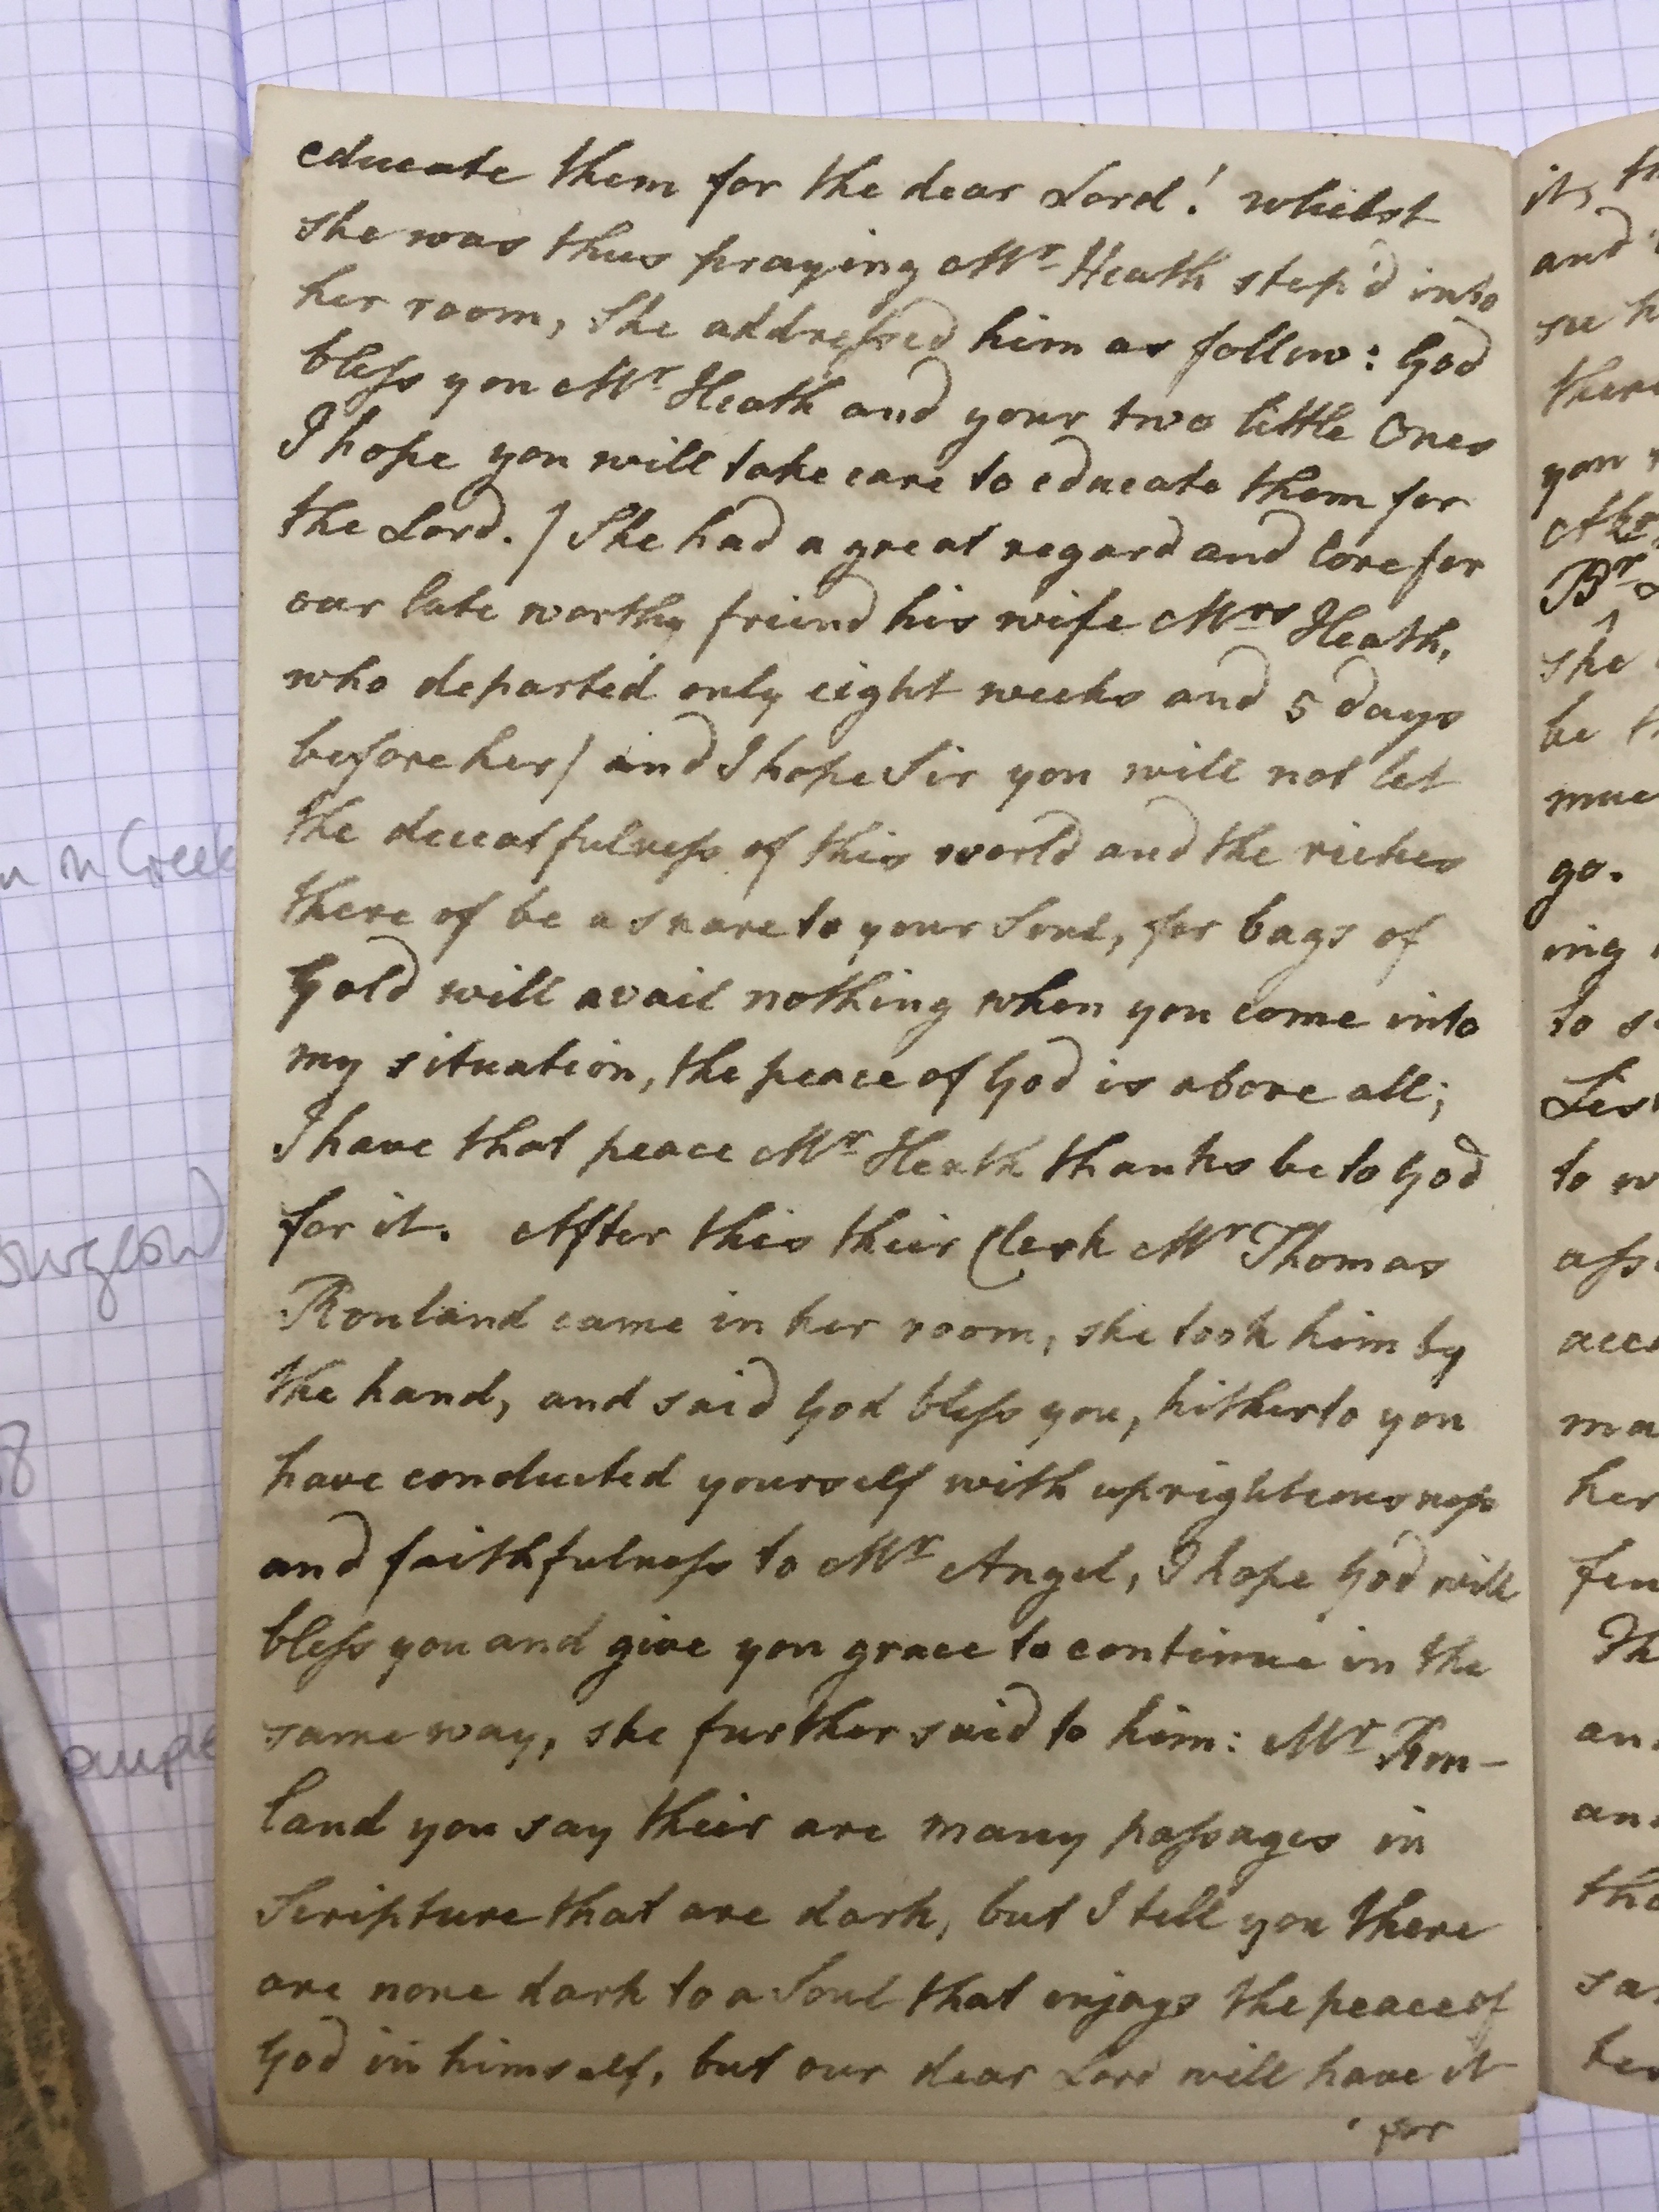 educate them for the dear Lord! whilst
she was thus praying Mr Heath step'd into
her room, she addressed him as follow: God
bless you Mr Heath and your two little Ones
I hope you will take care to educate them for
the Lord. / She had a great regard and love for
our late worthy friend his wife Mrs Heath,
who departed only eight weeks and 5 days
before her / and I hope Sir you will not let
the deceatfulness of this world and the riches
there of be a snare to your Soul, for bags of
Gold will avail nothing when you come into
my situation, the peace of God is above all;
I have that peace Mr Heath thanks be to God
for it. After this their Clerk Mr Thomas
Rowland came in her room, she took him by
the hand, and said God bless you, hitherto you
have conducted yourself with uprighteousness
and faithfulness to Mr Angel, I hope God will
bless you and give you grace to continue in the
same way, she further said to him: Mr Row-
land you say their are many passages in
Scripture that are dark, but I tell you there
are none dark to a Soul that enjoys the peace of
God in himself, but our dear Lord will have it
for
it, th
and
see h
there
you
Br
she
be th
muc
go.
ing
to s
to w
ass
acc
ma
her
few
Th
an
an
tha
sa